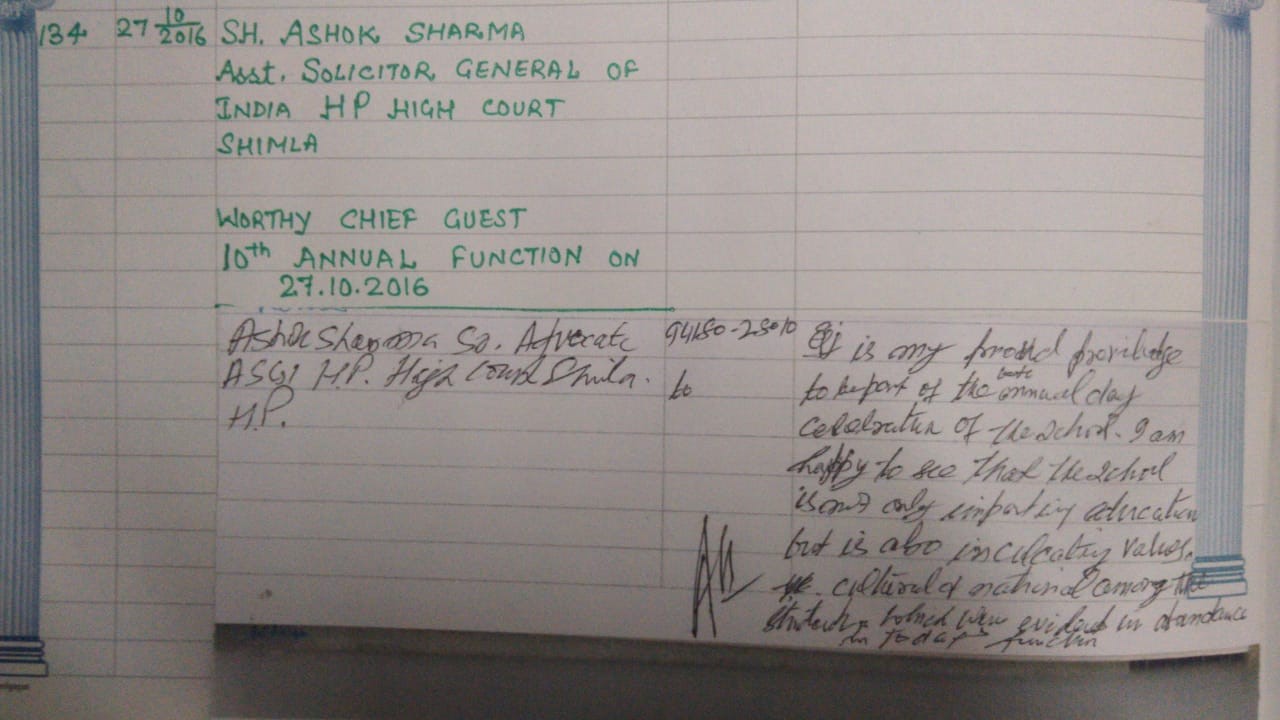 134 27 10/2016 SH. ASHOK SHARMA
Asst. SOLICITOR GENERAL OF
INDIA HP HIGH COURT
SHIMLA
WORTHY CHIEF GUEST
10th ANNUAL FUNCTION ON
27.10.2016
Ashok Sharma Sr. Advocate
ASGI H.P. High Court Shimla.
H.P.
to
is my proud privilege
to be part of the annual day
celebration of the School. I am
happy to see that the School
is not only imparting education
but is also inculcating values
cultural & national among the
students which were evident in abundance
in today's function